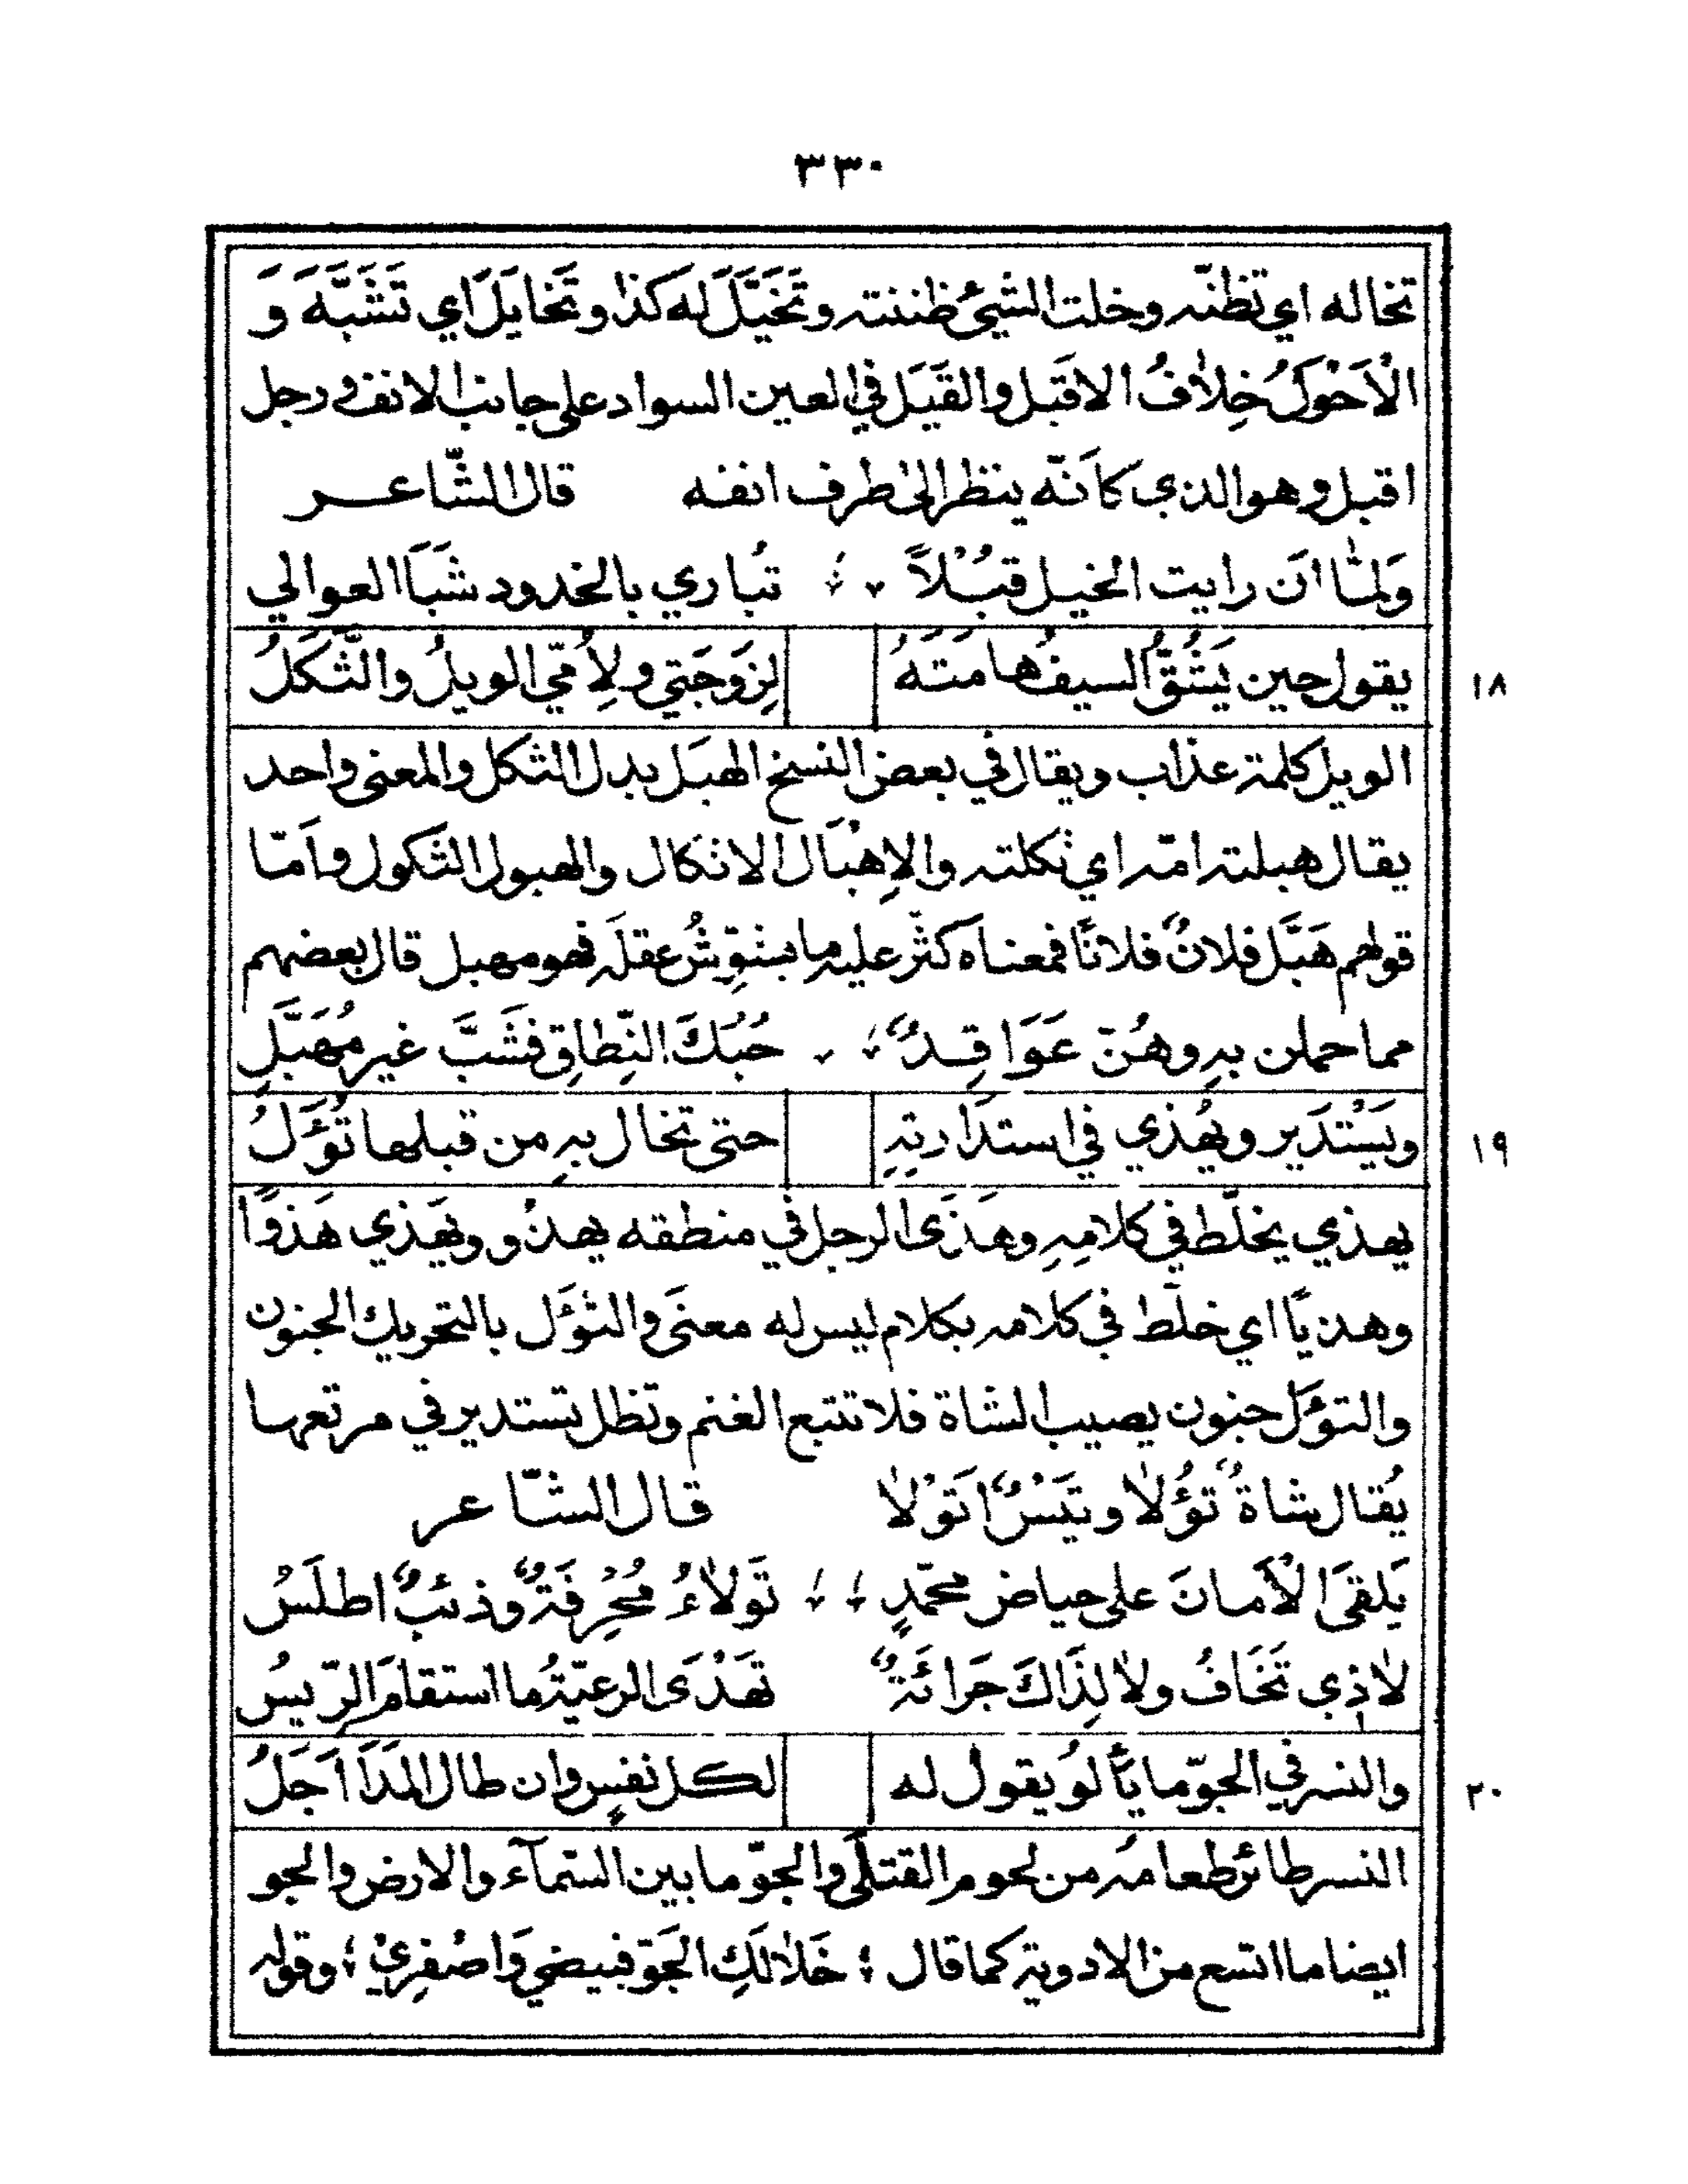 ٣٣٠
تخاله اي تظنّه وخلت الشيئ ظننته وتَخَيَّلَ له كذا وتَخايَلَ اي تَشَبَّهَ وَ
الْاَحْوَلُ خِلافُ الاقبل والقَبَل في العين السواد على جانب الانف ورجل
اقبل وهو الذي كاَنّه ينظر الى طرف انفه قال الشّاعر
وَلمّا اَن رايت الخيل قبُْلاً ؛ تُباري بالخدود شَبَا العوالي
١٨ يقول حين يَشُقُّ السيفُ هامَتَهُ لِزَوجَتي ولِاُمّي الويلُ والثَّكَلُ
الويل كلمة عذاب ويقال في بعض النسخ الهبَل بدل الثكل والمعنى واحد
يقال هبلته امّه اي ثكلته والاِهْبَال الاثكال والهبول الثكول واَمّا
قولهم هَبَّل فلانٌ فلانًا فمعناه كثّر عليه ما يشوّشُ عقلَه فهو مهبل قال بعضهم
مما حملن بهِ وهُنّ عَوَاقِدٌ ؛ حُبُكَ النِّطاقِ فشَبَّ غير مُهَبَّلِ
١٩ ويَسْتَدير ويهُذي في استدَارتِهِ حتى تخال بهِ من قبلها تُؤَلُ
يهذي يخلّط في كلامِهِ وهَذَى الرجل في منطقه يهذُو ويَهَذي هَذوًا
وهذيًا اي خلّط في كلامه بكلام ليس له معنَى والتؤَل بالتحريك الجنون
والتؤَل جنون يصيب الشاة فلا تتبع الغنم وتظل تستدير في مرتعها
يُقال شاةٌ تؤُلا وتَيَسٌْ اتَوْلا قال الشّاعر
يَلقىَ الْاَمانَ على حياض محمّدٍ ؛ ؛ تَولاءُ مُخْرِفَةٌ وذئبٌ اطلَسُ
لاذِي تَخَافُ ولا لِذَاكَ جَرائَةٌ تهَْدَى الرعيّةُ ما استقامَ الرّيسُ
٢٠ والنسر في الجوّ ما يأْلوُ يقول له لكل نفسٍ وان طال المدَا اَجَلُ
النسر طائر طعامُه من لحوم القتلَى والجوّ ما بين السّمآء والارض والجو
ايضا ما اتسع من الادوية كما قال ؛ خَلا لَكِ الجَوّ فبيضي وَاصْفِريْ ؛ وقوله